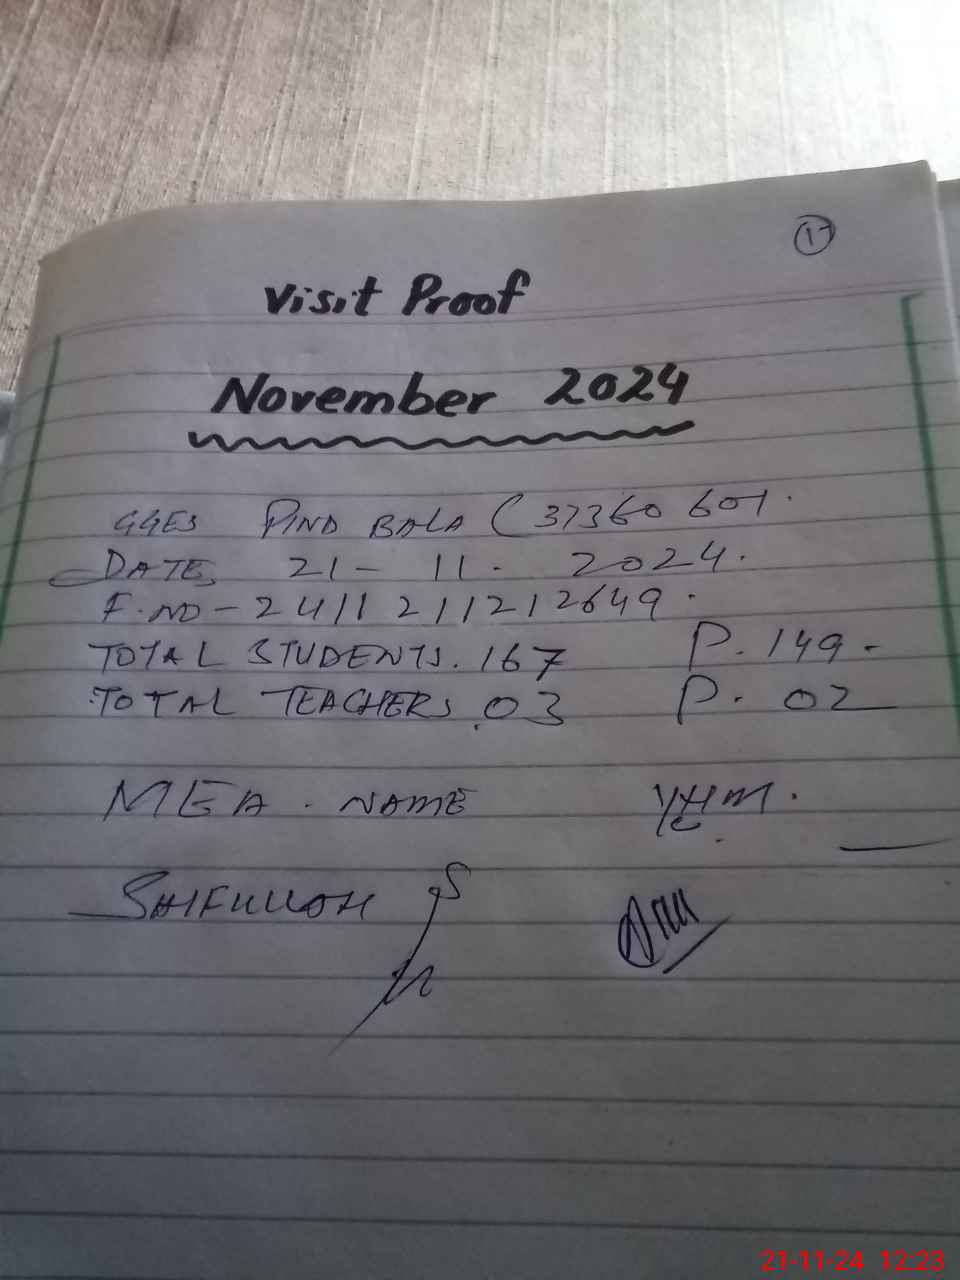 17
Visit Proof
November 2024
GGES PIND BALA (37360601.
DATE, 21 - 11 - 2024.
F.NO - 2411211212649.
TOTAL STUDENTS. 167 P. 149 -
TOTAL TEACHERS. 03 P. 02
MEA. NAME
SAIFULLAH
21-11-24 12:23